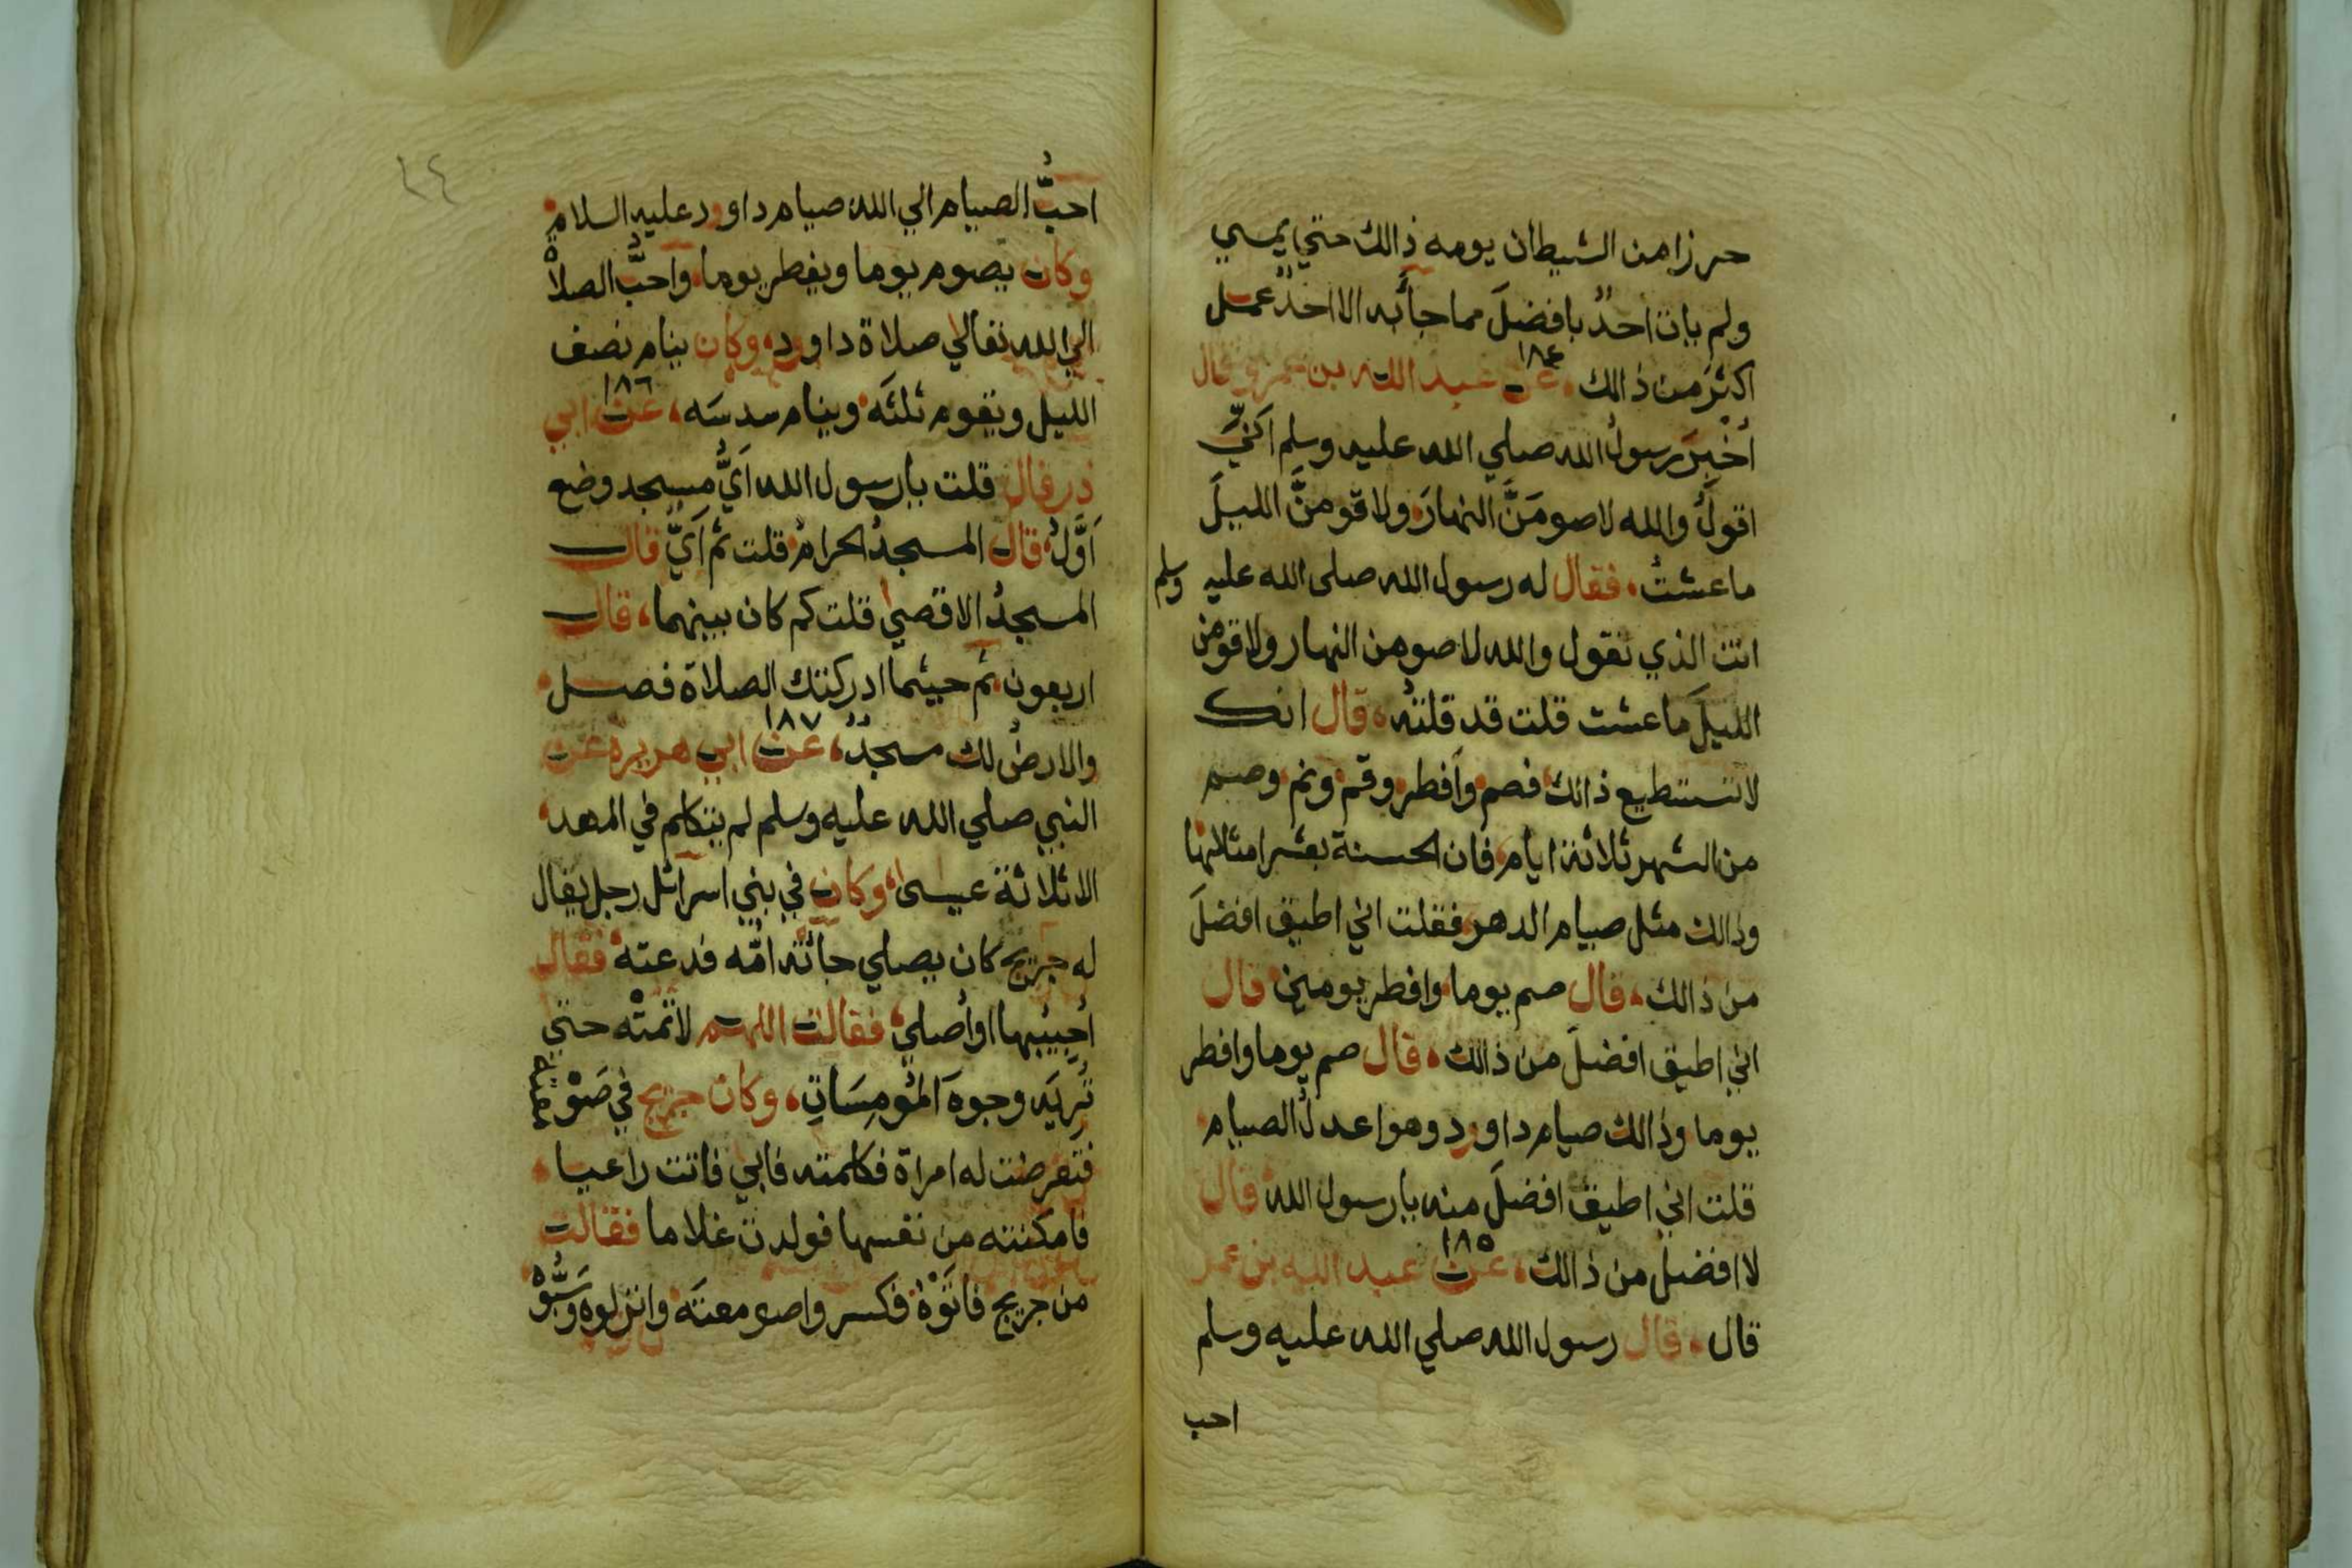 حرزا من الشيطان يومه ذالك حتي يمسي
ولم يات احدٌ بافضلَ مما جائه الا احدٌ عمل
اكثرَ من ذالك، عن ١٨٤ عبد الله بن عمرو قال
اُخْبِرَ رسولُ الله صلي الله عليه وسلم اَنيّ
اقولُ والله لاصومَنَّ النهارَ ولاقومنَّ الليلَ
ما عشتُ، فقال له رسول الله صلى الله عليه وسلم
انت الذي تقول والله لاصومن النهار ولاقومن
الليلَ ما عشت قلت قد قلتُه، قال انك
لا تستطيع ذالك فصم وأفطر وقم ونم وصم
من الشهر ثلاثة ايام فان الحسنة بعشر امثالها
وذالك مثل صيام الدهر فقلت اني اطيق افضلَ
من ذالك، قال صم يوما وافطر يومين قال
اني اطيق افضلَ من ذالك، قال صم يوما وافطر
يوما وذالك صيام داوود وهو اعدلُ الصيام
قلت اني اطيق افضلَ منه يا رسول الله قال
لا افضل من ذالك، عن ١٨٥ عبد الله بن عمر
قال، قال رسول الله صلي الله عليه وسلم
احب
٦٤
احبُّ الصيام الي الله صيام داوود عليه السلام
وكان يصوم يوما ويفطر يوما، واحبُّ الصلاة
الي الله تعالي صلاة داوود، وكان ينام نصف
الليل ويقوم ثلثَه وينام سدسَه، عن ١٨٦ ابي
ذر قال قلت يا رسول الله اَيُّ مسجد وضع
اَوَّلُ، قال المسجدُ الحرامُ قلت ثم اَيّ قال
المسجدُ الاقصي قلت كم كان بينهما، قال
اربعون ثم حيثما ادركتك الصلاة فصل
والارضُ لك مسجدٌ، عن ١٨٧ ابي هريرة عن
النبي صلي الله عليه وسلم لم يتكلم في المهد
الا ثلاثة عيسى، وكان في بني اسرائل رجل يقال
له جريج كان يصلي جائته امّه فدعته فقال
اُجيبها او اُصلي، فقالت اللهم لا تمتْه حتي
تُرِيَه وجوهَ المُومِسَاتِ، وكان جريج في صَوْمعته
فتعرضت له امراة فكلمته فابي فاتت راعيا
فامكنته من نفسها فولدت غلاما فقالت
من جريج فاتَوْهُ فكسروا صومعتَه وانزلوه وسَبُّوْهُ